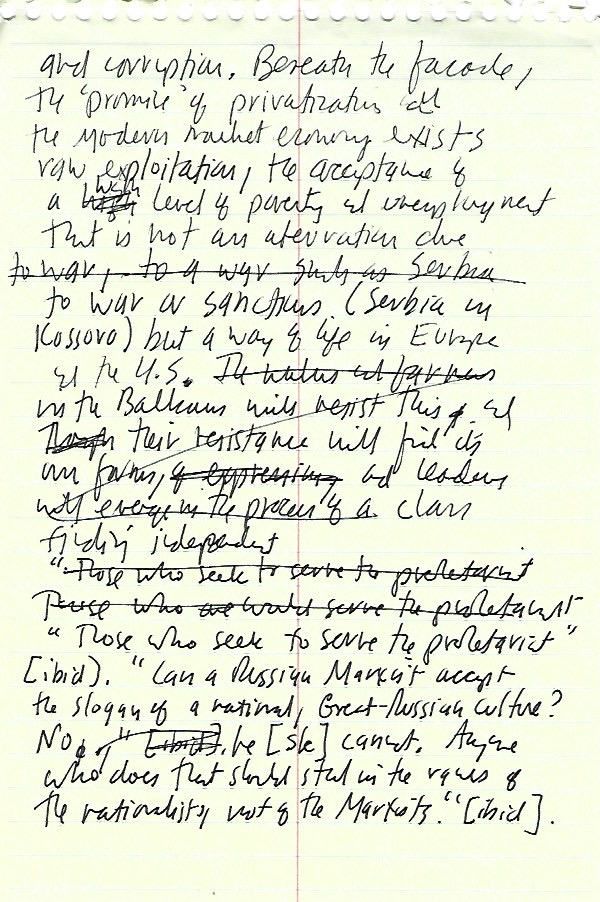 and corruption. Beneath the facade,
the 'promise' of privatization and
the modern market economy exists
raw exploitation, the acceptance of
a high level of poverty and unemployment
that is not an aberration due
to war, to a war such as Serbia
to war or sanctions (Serbia in
Kossovo) but a way of life in Europe
and the U.S. The workers and farmers
in the Balkans will resist this, and
Though their resistance will find its
own forms, of expressing and leaders
will emerge in the process of a class
finding independent
"Those who seek to serve the proletariat
Those who are would serve the proletariat
"Those who seek to serve the proletariat"
[ibid). "Can a Russian Marxist accept
the slogan of a national, Great-Russian culture?
No," [ibid]. he [sic] cannot. Anyone
who does that should stand in the ranks of
the nationalists, not of the Marxists." [ibid].